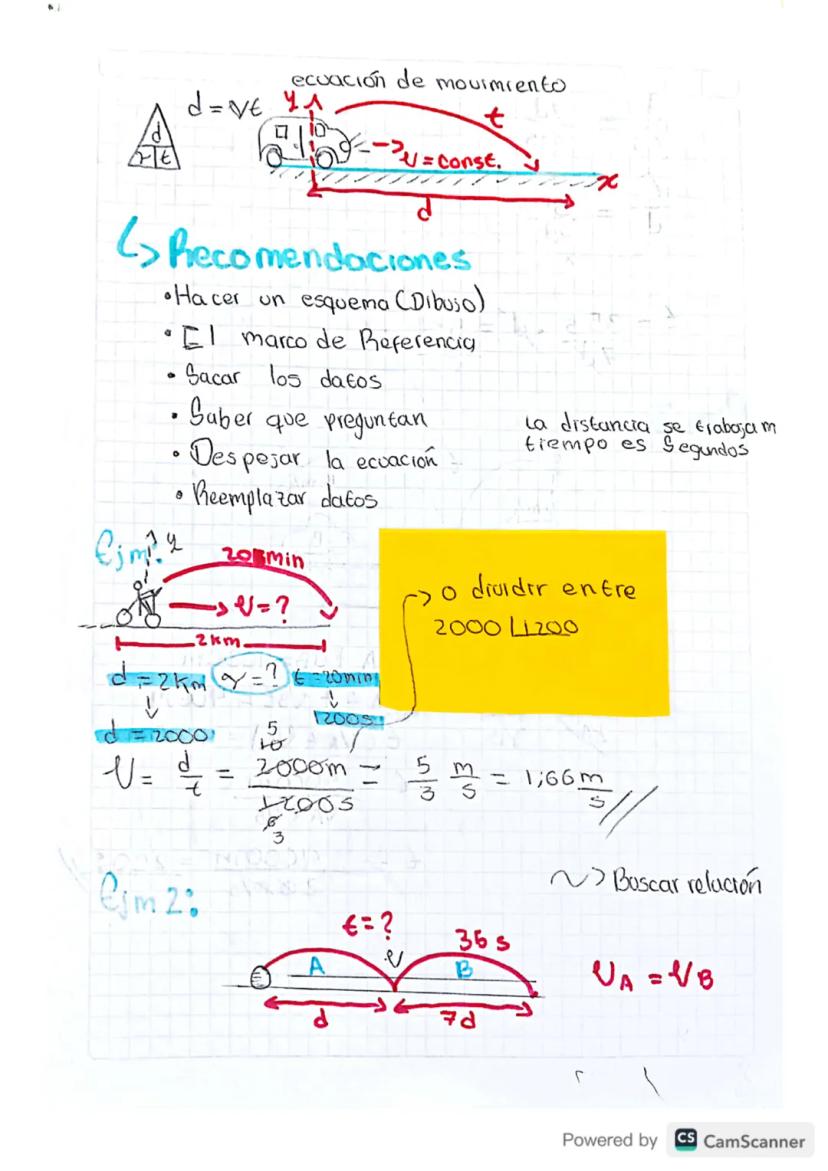 ecuación de movimiento
d = vt
y
t
d
v t
v = const.
x
d
↳ Recomendaciones
• Hacer un esquema (Dibujo)
• El marco de Referencia
• Sacar los datos
• Saber que preguntan
• Despejar la ecuación
• Reemplazar datos
La distancia se trabaja m
tiempo es Segundos
Ejm:
y
20 min
→ v = ?
2 km
d = 2 km v = ? t = 20 min
↓ ↓
d = 2000 1200s
→ o dividir entre
2000 1200
v = d/t = 2000m/1200s = 5/3 m/s = 1,66 m/s
5
10
6
3
Ejm 2:
~> Buscar relación
t = ?
v
36 s
A
B
d
7d
vA = vB
Powered by CS CamScanner